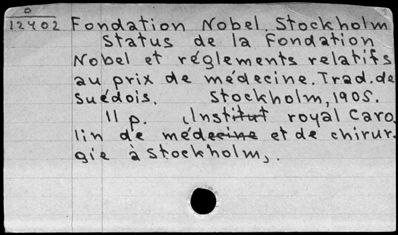 0
12402 Fondation Nobel. Stockholm
Status de la Fondation
Nobel et réglements relatifs
au prix de médecine. Trad. de
suédois. Stockholm, 1905.
11 p. (Institut royal Caro
lin de médecine et de chirur-
gie à Stockholm,.